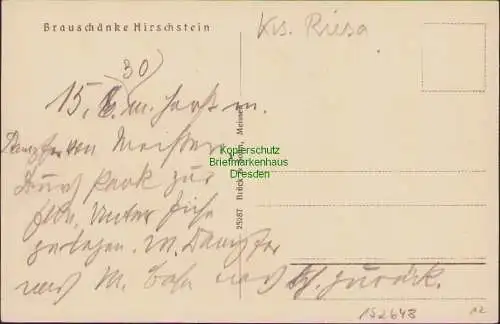 Brauschänke Hirschstein
Krs. Riesa
30
15. 6. m.
Dampfer von Meißen
Durch Park zur
Elbe, unter
gelegen. M. Dampfer
nach M. Bahn nach zurück.
25287 Brück & Sohn, Meissen
Kopierschutz
Briefmarkenhaus
Dresden
152648